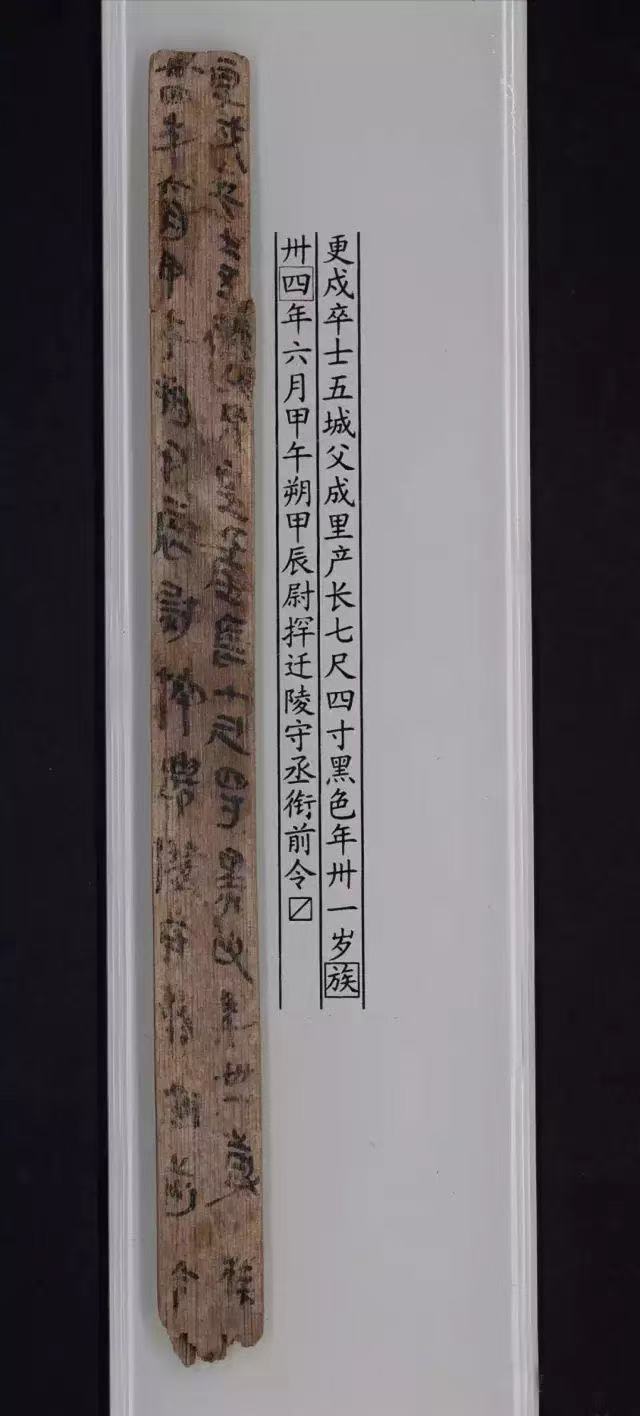 更戍卒士五城父成里产长七尺四寸黑色年卅一岁族
卅四年六月甲午朔甲辰尉探迁陵守丞衔前令☑